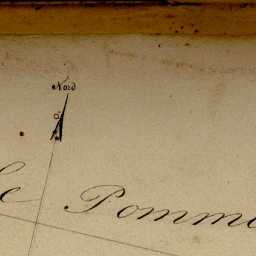 Nord
Pomm